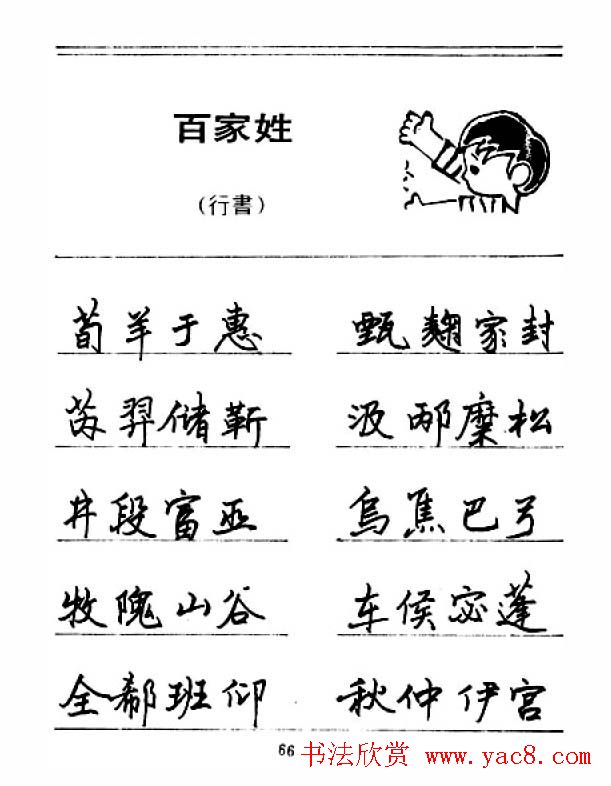 百家姓
（行書）
荀羊于惠 甄麴家封
芮羿储靳 汲邴糜松
井段富巫 烏焦巴弓
牧隗山谷 车侯宓蓬
全郗班仰 秋仲伊宫
66 书法欣赏 www.yac8.com